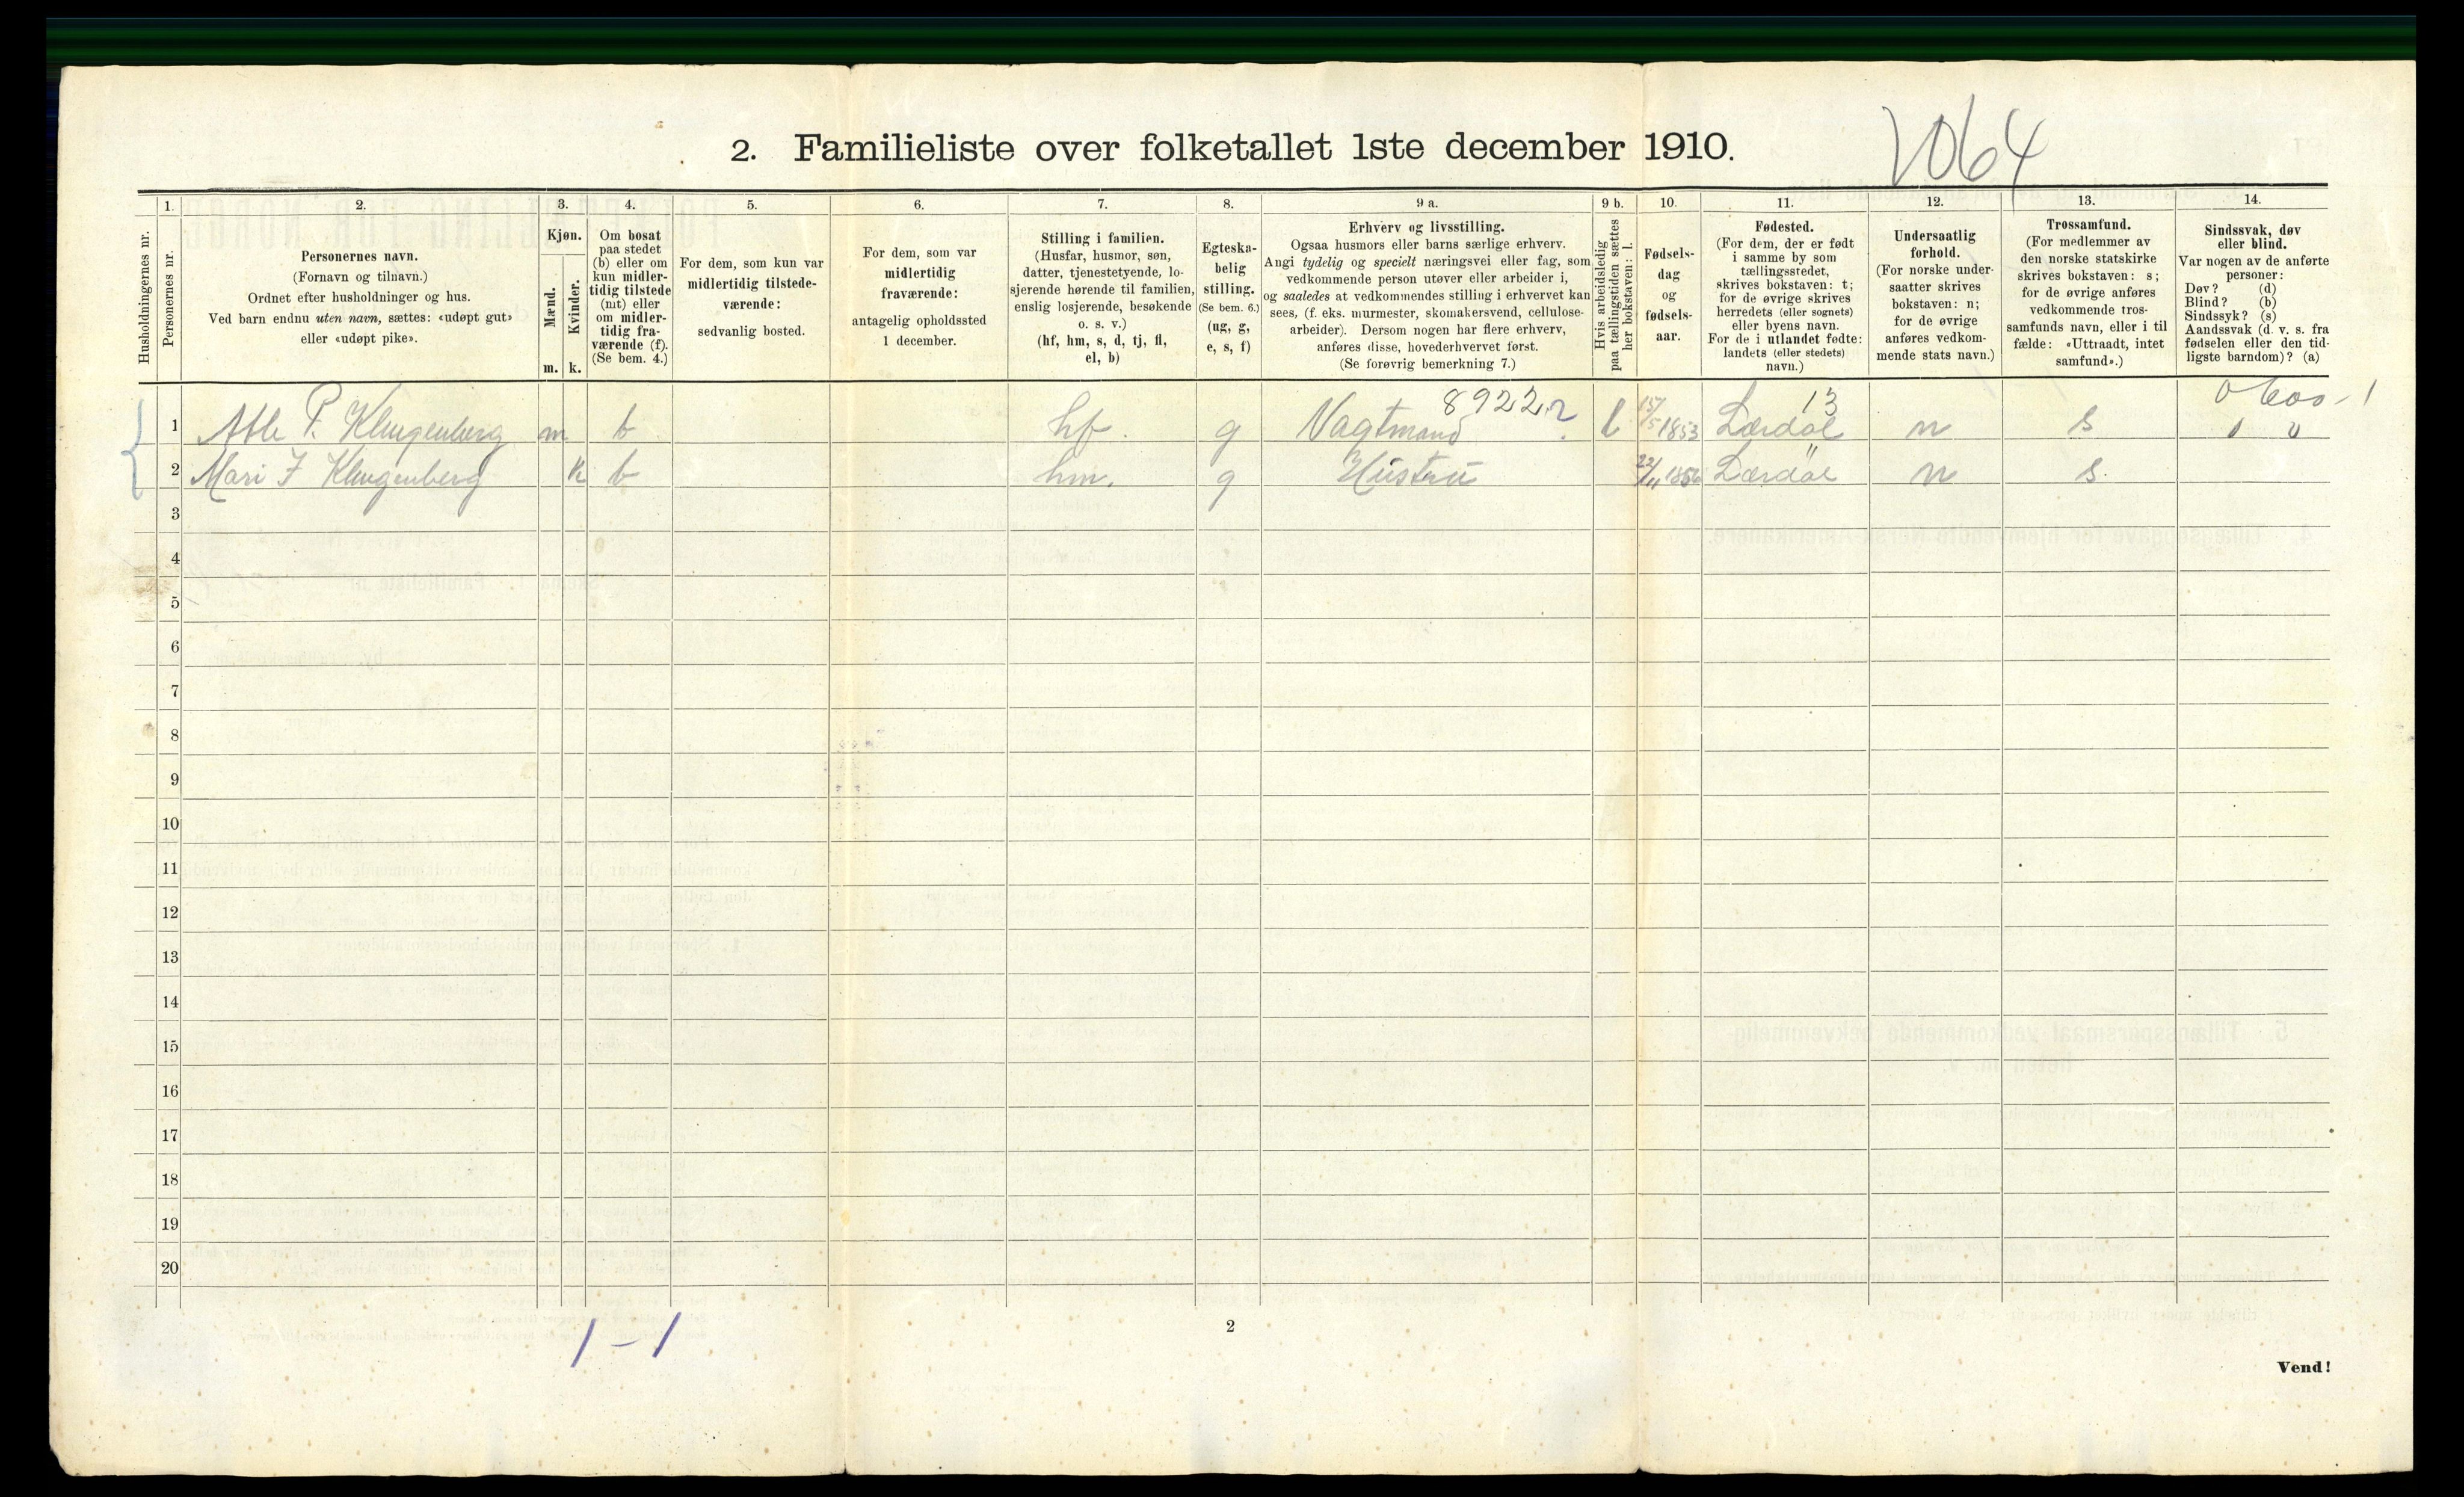 2. Familieliste over folketallet 1ste december 1910.
2064
Husholdningernes nr.
1.
Personernes nr.
2.
Personernes navn.
(Fornavn og tilnavn.)
Ordnet efter husholdninger og hus.
Ved barn endnu uten navn, sættes: «udøpt gut»
eller «udøpt pike».
3.
Kjøn.
Mænd.
Kvinder.
m. k.
4.
Om bosat
paa stedet
(b) eller om
kun midler-
tidig tilstede
(mt) eller
om midler-
tidig fra-
værende (f).
(Se bem. 4.)
5.
For dem, som kun var
midlertidig tilstede-
værende:
sedvanlig bosted.
6.
For dem, som var
midlertidig
fraværende:
antagelig opholdssted
1 december.
7.
Stilling i familien.
(Husfar, husmor, søn,
datter, tjenestetyende, lo-
sjerende hørende til familien,
enslig losjerende, besøkende
o. s. v.)
(hf, hm, s, d, tj, fl,
el, b)
8.
Egteska-
belig
stilling.
(Se bem. 6.)
(ug, g,
e, s, f)
9 a.
Erhverv og livsstilling.
Ogsaa husmors eller barns særlige erhverv.
Angi tydelig og specielt næringsvei eller fag, som
vedkommende person utøver eller arbeider i,
og saaledes at vedkommendes stilling i erhvervet kan
sees, (f. eks. murmester, skomakersvend, cellulose-
arbeider). Dersom nogen har flere erhverv,
anføres disse, hovederhvervet først.
(Se forøvrig bemerkning 7.)
9 b.
Hvis arbeidsledig
paa tællingstiden sættes
her bokstaven: l.
10.
Fødsels-
dag
og
fødsels-
aar.
11.
Fødested.
(For dem, der er født
i samme by som
tællingsstedet,
skrives bokstaven: t;
for de øvrige skrives
herredets (eller sognets)
eller byens navn.
For de i utlandet fødte:
landets (eller stedets)
navn.)
12.
Undersaatlig
forhold.
(For norske under-
saatter skrives
bokstaven: n;
for de øvrige
anføres vedkom-
mende stats navn.)
13.
Trossamfund.
(For medlemmer av
den norske statskirke
skrives bokstaven: s;
for de øvrige anføres
vedkommende tros-
samfunds navn, eller i til
fælde: «Uttraadt, intet
samfund».)
14.
Sindssvak, døv
eller blind.
Var nogen av de anførte
personer:
Døv? (d)
Blind? (b)
Sindssyk? (s)
Aandssvak (d. v. s. fra
fødselen eller den tid-
ligste barndom)? (a)
8922 13
1 P. Klingenberg m b hf. g Vagtmand l 15/5 1853 Lærdal n s
2 Mari J Klingenberg k b hm. g Hustru 22/11 Lærdal n s.
3
4
5
6
7
8
9
10
11
12
13
14
15
16
17
18
19
20
1 - 1
2
Vend!